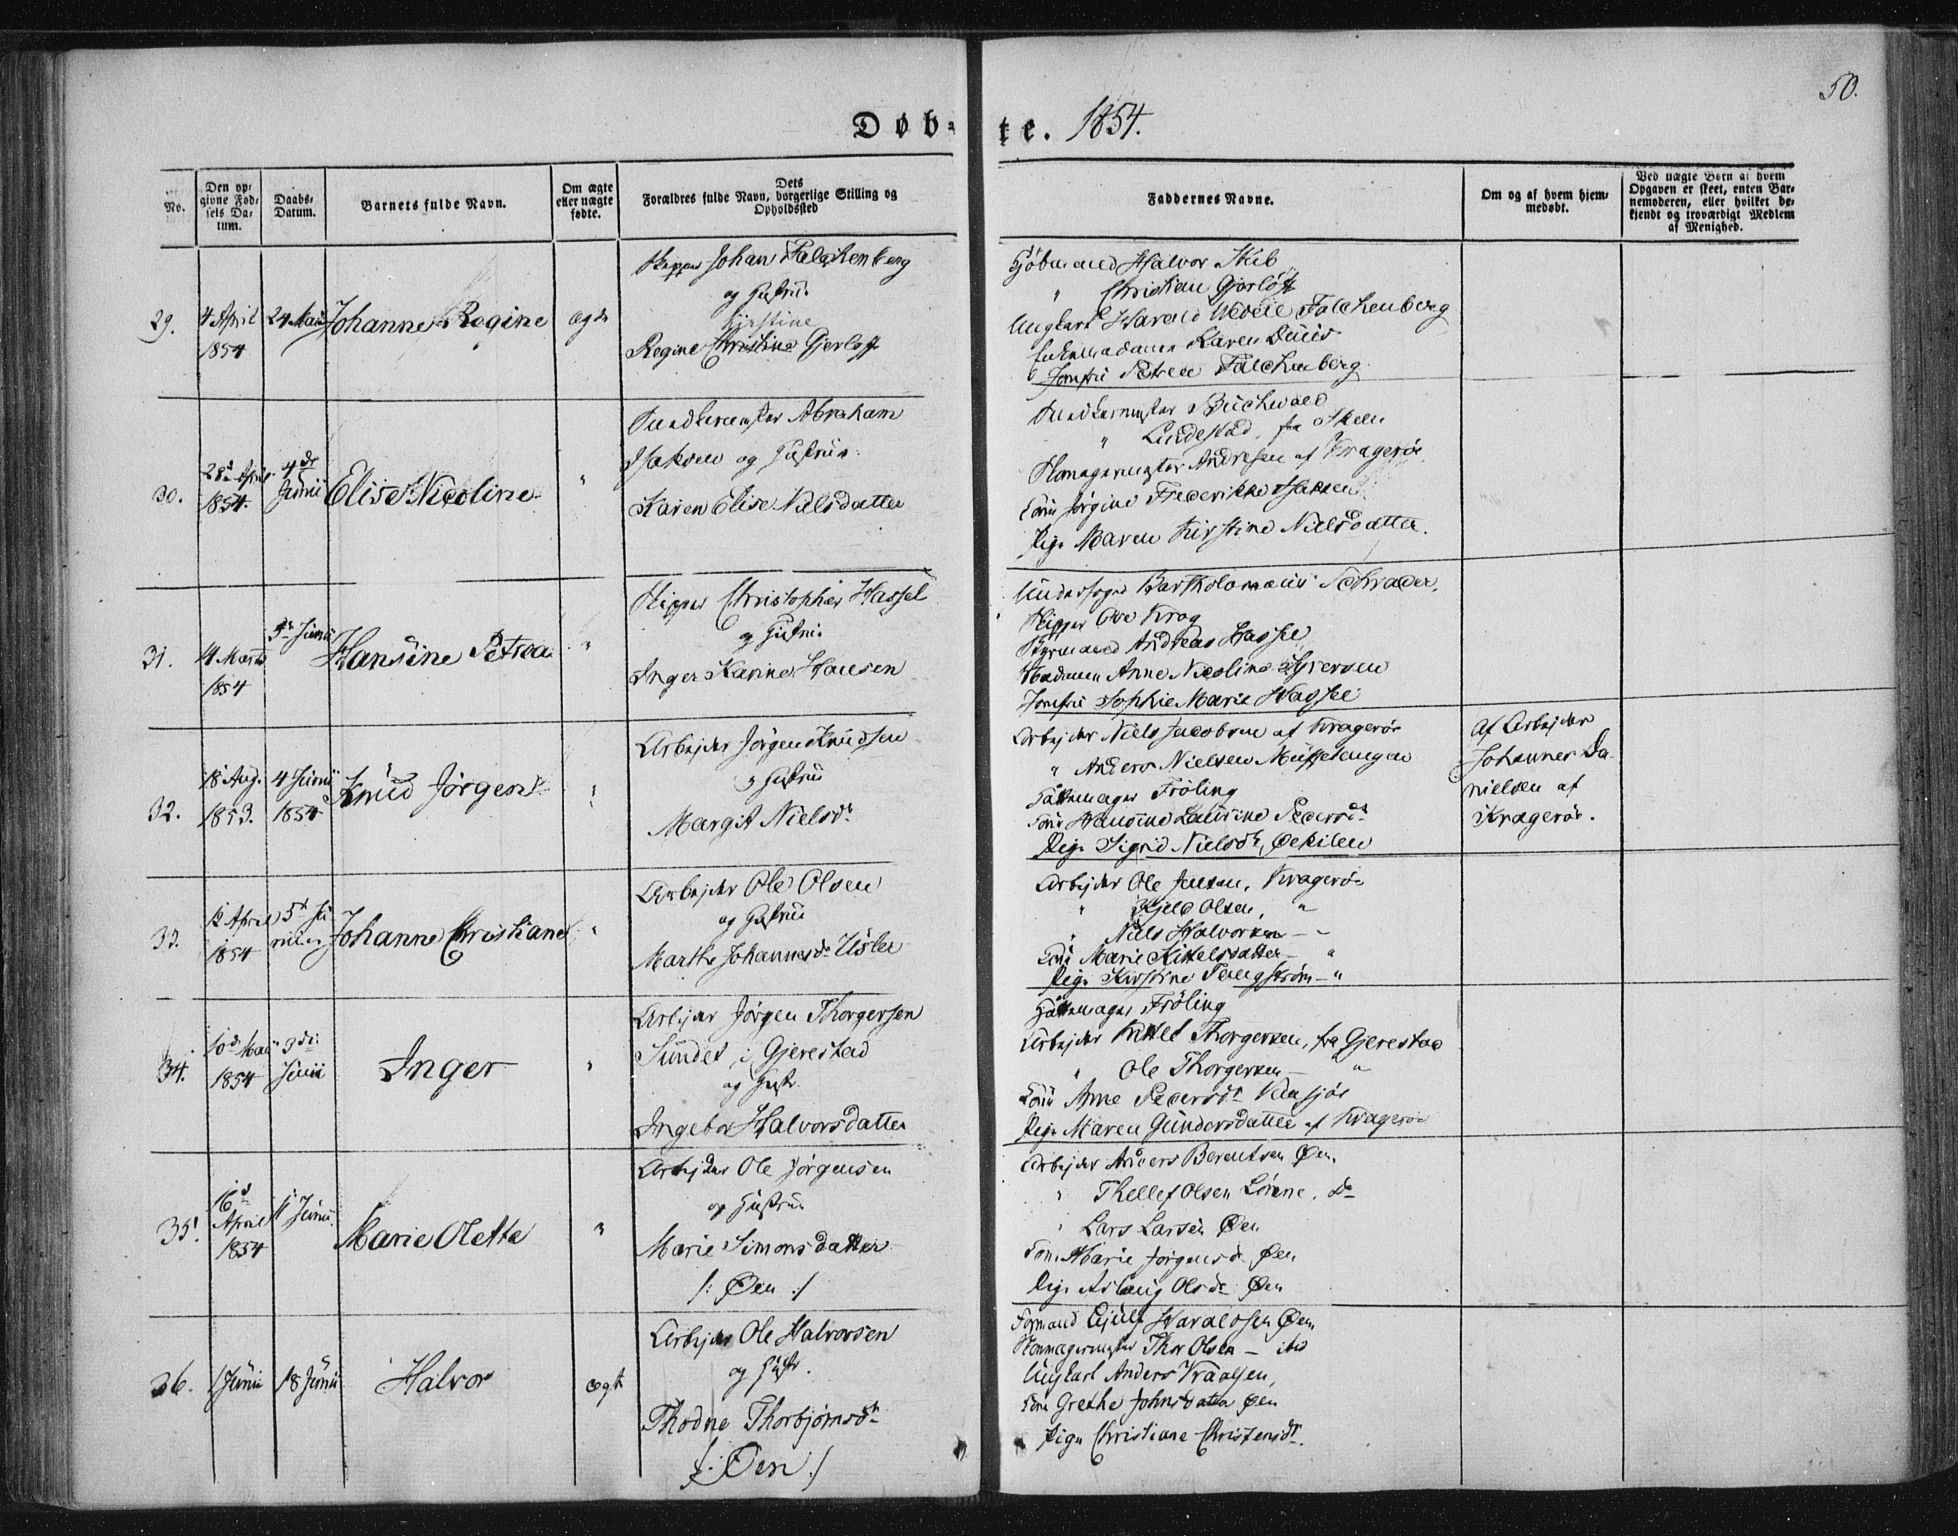 50.
Døb- te. 1854.
No.
Den op-
givne Fød-
sels Da-
tum.
Daabs-
Datum.
Barnets fulde Navn.
Om ægte
eller uægte
fødte.
Dets
Forældres fulde Navn, borgerlige Stilling og
Opholdssted
Faddernes Navne.
Om og af hvem hjem-
medøbt.
Ved uægte Børn af hvem
Opgaven er skeet, enten Bar-
nemoderen, eller hvilket be-
kjendt og troværdigt Medlem
af Menighed.
29.
4 April
1854
24 Mai
Johanne Regine
ægte
Skipper Johan Falchenberg
og Hustrue
Kirstine
Regine Christine Gjerløff
Kjøbmand Halvor Stub
" Christian Gjerløff
Ungkarl Harald Wedele Falchenberg
Enkemadame Karen Duus
Jomfru Petrea Falchenberg
30.
28de April
1854.
4de
Junii
Elise Nicoline
"
Abraham
Isaksen og Hustrue
Karen Elise Nilsdatter
Buchwald
" Lindestad, fra Skeen
Andresen af Kragerøe
Kone Jørgine Frederikke Isaksen
Pige Maren Kirstine Nielsdatter.
31.
4 Marts
1854
5te Junii
Hansine Petrea
"
Skipper Christopher Hassel
og Hustrue
Inger Karine Hansen
Bartholomæus Schrader,
Skipper Ove Krog
Styrmand Andreas Hassel
Madame Anne Nicoline Syversen
Jomfru Sophie Marie Hassel
32.
18 Aug.
1853.
4 Junii
1854
Knud Jørgen
"
Arbejder Jørgen Knudsen
og Hustrue
Margit Nielsdr
Arbejder Niels Jacobsen af Kragerøe
" Anders Nielsen
Hattemager Fröling
Kone Hansine Laurine Pedersdr
Pige Sigrid Nielsdr,
af Arbejder
Johannes Da-
nielsen af
Kragerøe.
33.
12 April
1854
5te Ju-
nii
Johanne Christiane
"
Arbejder Ole Olsen
og Hustrue
Marthe Johannesdr Usler
Arbejder Ole Jensen, Kragerøe
" Kjeld Olsen, "
" Niels Halvorsen — "
Kone Marie Kittelsdatter — "
Pige Kirstine Tengstrøm — "
34.
10de Mai
1854
3die
Junii
Inger
"
Arbejder Jørgen Thorgersen
Sundet i Gjerestad
og Hustr.
Ingebor Halvorsdatter
Hattemager Fröling
Arbejder Kittel Thorgersen, fra Gjerestad
" Ole Thorgersen — "
Kone Anne Pedersdr
Pige Maren Gundersdatter af Kragerøe
35.
16de
April
1854
11 Junii
Marie Oletta
"
Arbejder Ole Jørgensen
og Hustrue
Marie Simonsdatter
/: Øen :/
Arbejder Anders Berentsen Øen
" Thellef Olsen
" Lars Larsen Øen
Kone Marie Jørgensdr Øen
Pige Aslaug Olsdr Øen
36.
1 Junii
18 Junii
Halvor
ægte
Arbejder Ole Halvorsen
og Hustr.
Thodne Thorbjørnsdr
/: Øen :/
Haraldsen Øen
Thor Olsen — ibid
Ungkarl Anders Kraalsen,
Kone Grethe Johnsdatter Øen
Pige Christiane Christensdr.